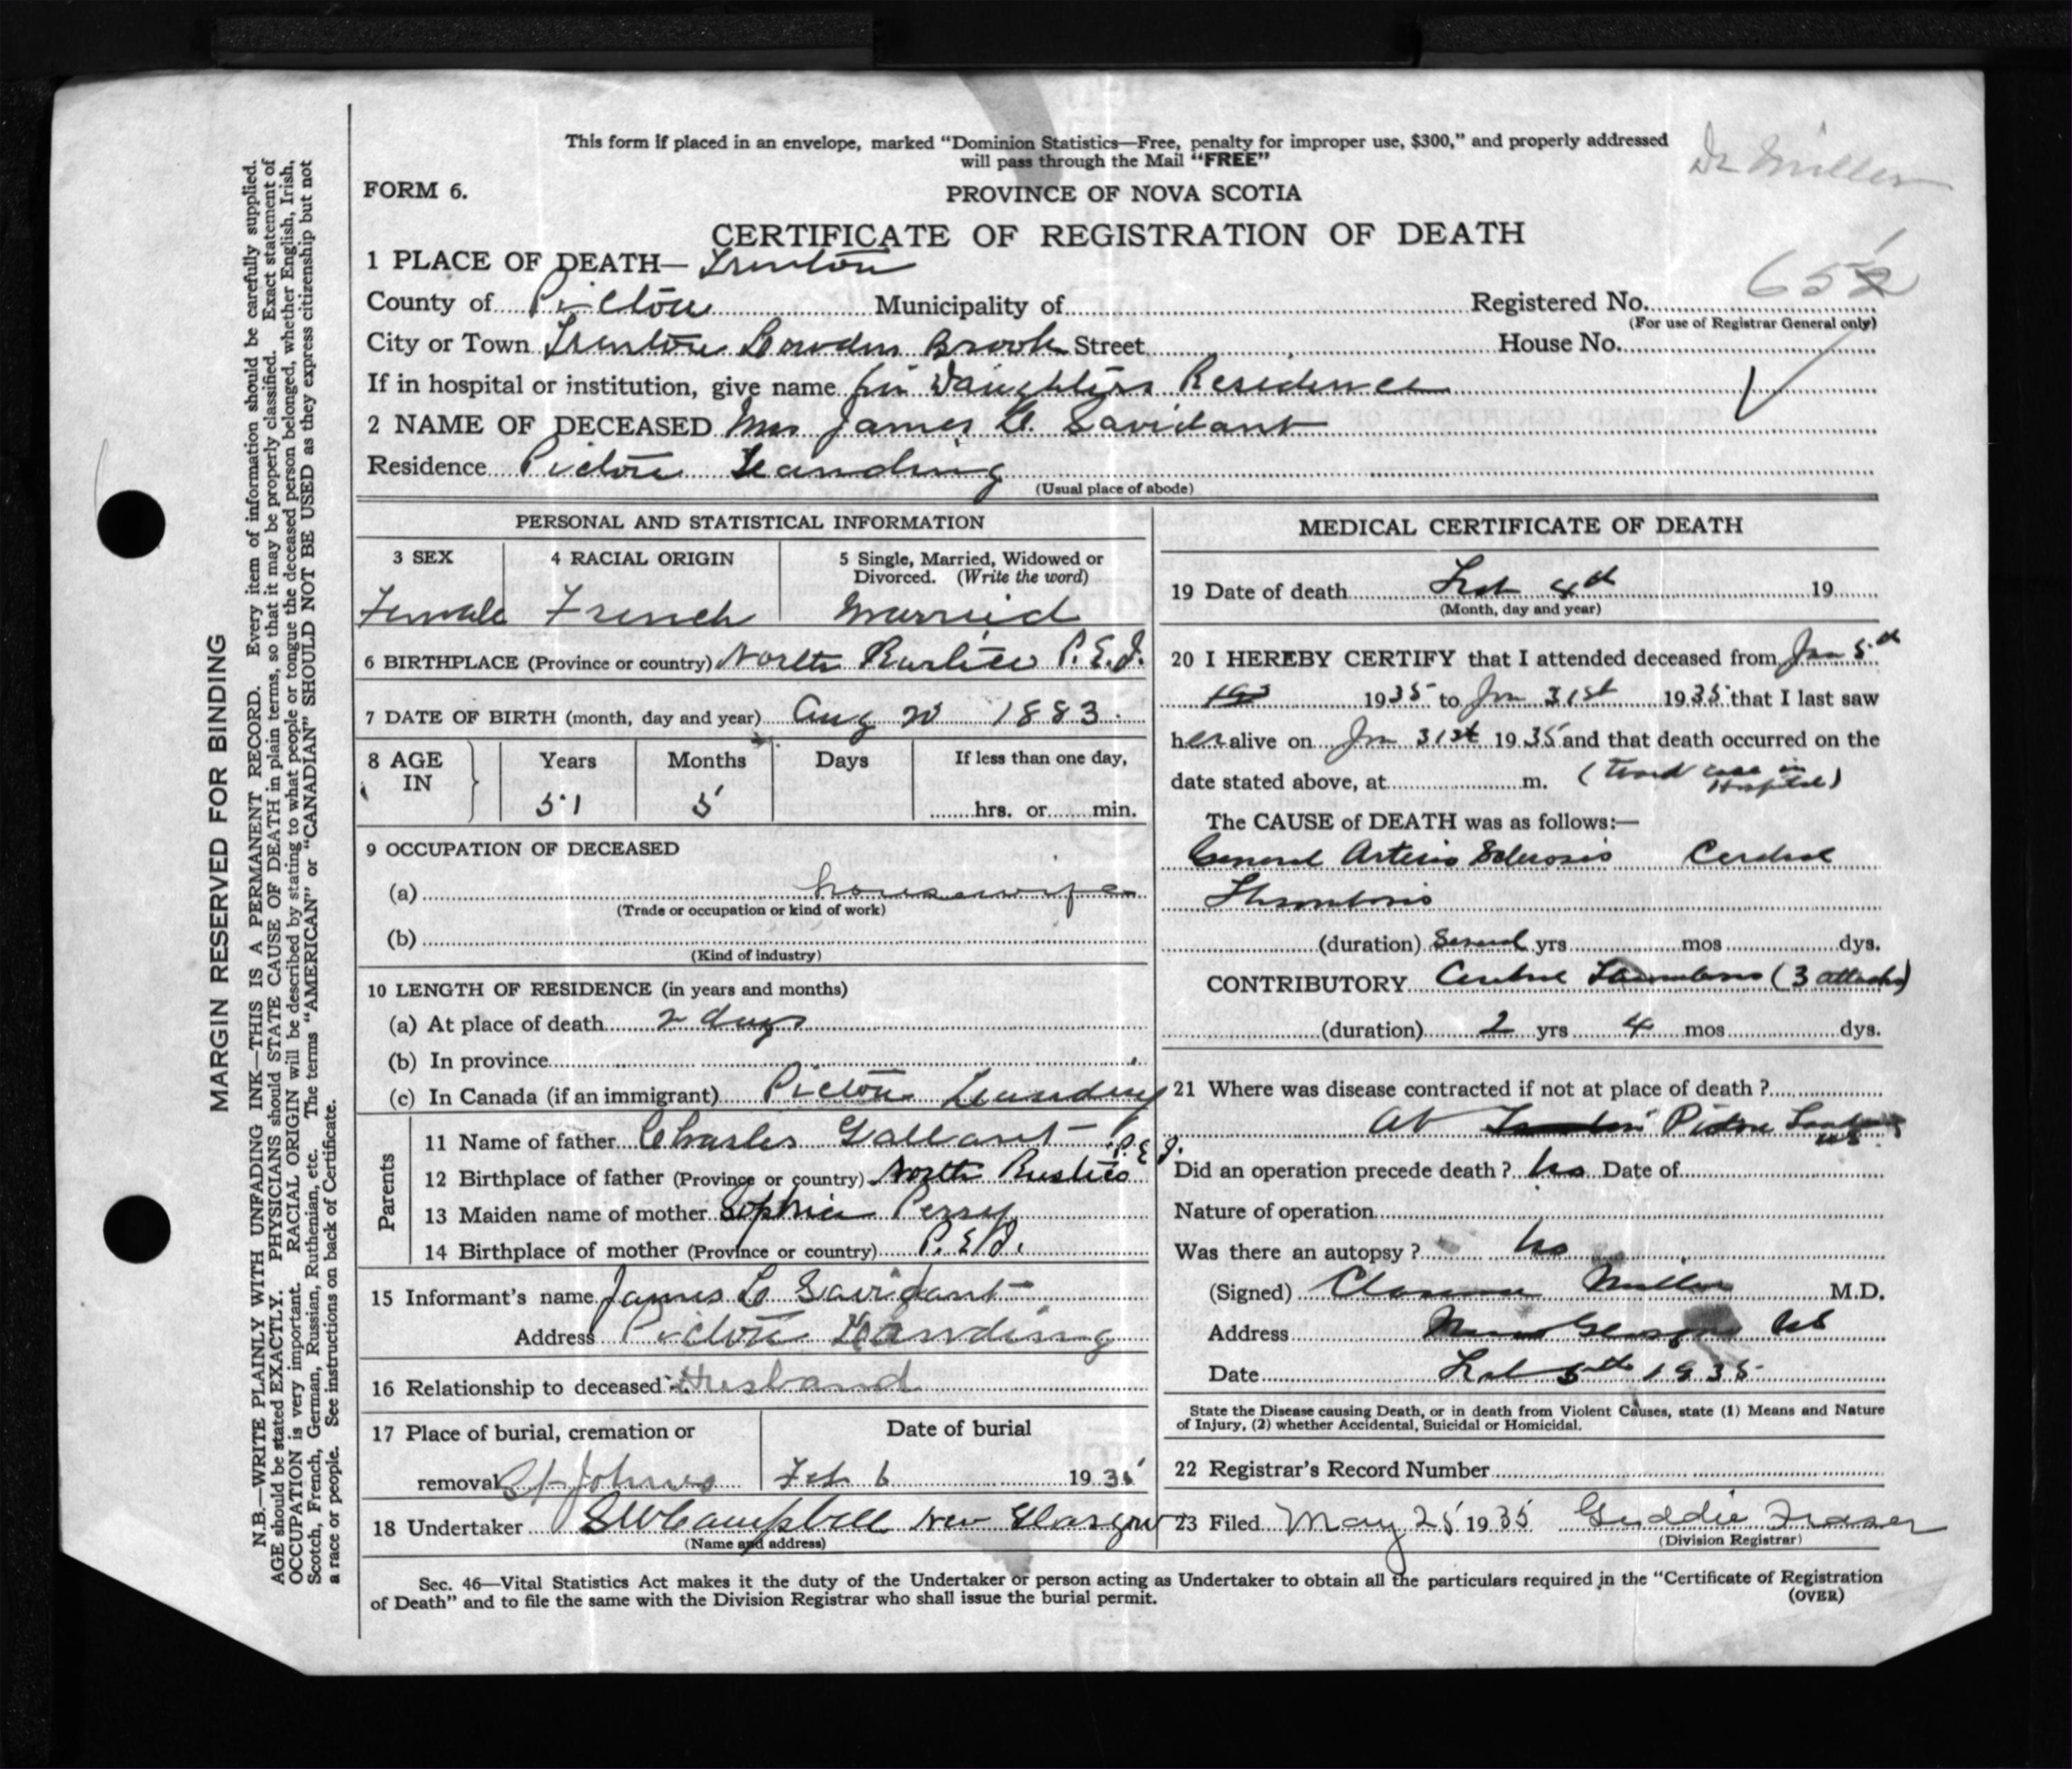 This form if placed in an envelope, marked "Dominion Statistics—Free, penalty for improper use, $300," and properly addressed
will pass through the Mail "FREE"
Dr Miller
FORM 6.
PROVINCE OF NOVA SCOTIA
CERTIFICATE OF REGISTRATION OF DEATH
1 PLACE OF DEATH— Trenton
County of Pictou Municipality of Registered No.
(For use of Registrar General only)
City or Town Trenton Lowden Brook Street House No.
If in hospital or institution, give name Daughters Residence
2 NAME OF DECEASED Mrs James C. Savidant
Residence Pictou Landing
(Usual place of abode)
PERSONAL AND STATISTICAL INFORMATION
3 SEX 4 RACIAL ORIGIN 5 Single, Married, Widowed or
Divorced. (Write the word)
Female French Married
6 BIRTHPLACE (Province or country) North Rustico P.E.I.
7 DATE OF BIRTH (month, day and year) Aug 1883
8 AGE IN Years Months Days If less than one day,
51 5 hrs. or min.
9 OCCUPATION OF DECEASED
(a) housewife
(Trade or occupation or kind of work)
(b)
(Kind of industry)
10 LENGTH OF RESIDENCE (in years and months)
(a) At place of death 2 days
(b) In province
(c) In Canada (if an immigrant) Pictou Landing
Parents
11 Name of father Charles Gallant
12 Birthplace of father (Province or country) North Rustico P.E.I.
13 Maiden name of mother Sophia Perry
14 Birthplace of mother (Province or country) P.E.I.
15 Informant's name James C Savidant
Address Pictou Landing
16 Relationship to deceased Husband
17 Place of burial, cremation or Date of burial
removal St Johns Feb 6 1935
18 Undertaker SW Campbell New Glasgow
(Name and address)
MEDICAL CERTIFICATE OF DEATH
19 Date of death Feb 4th 19
(Month, day and year)
20 I HEREBY CERTIFY that I attended deceased from Jan 5th
1935 to Jan 31st 1935 that I last saw
her alive on Jan 31st 1935 and that death occurred on the
date stated above, at m. (Ward case in Hospital)
The CAUSE of DEATH was as follows:—
General Arterio Sclerosis Cerebral
Thrombosis
(duration) Several yrs mos dys.
CONTRIBUTORY Cerebral Thrombosis (3 attacks)
(duration) 2 yrs 4 mos dys.
21 Where was disease contracted if not at place of death ?
at Pictou Landing
Did an operation precede death ? No Date of
Nature of operation
Was there an autopsy ? No
(Signed) Clarence Miller M.D.
Address New Glasgow NS
Date Feb 5th 1935
State the Disease causing Death, or in death from Violent Causes, state (1) Means and Nature
of Injury, (2) whether Accidental, Suicidal or Homicidal.
22 Registrar's Record Number
23 Filed May 25 1935 Fraser
(Division Registrar)
Sec. 46—Vital Statistics Act makes it the duty of the Undertaker or person acting as Undertaker to obtain all the particulars required in the "Certificate of Registration
of Death" and to file the same with the Division Registrar who shall issue the burial permit.
(OVER)
MARGIN RESERVED FOR BINDING
N.B.—WRITE PLAINLY WITH UNFADING INK—THIS IS A PERMANENT RECORD. Every item of information should be carefully supplied.
AGE should be stated EXACTLY. PHYSICIANS should STATE CAUSE OF DEATH in plain terms, so that it may be properly classified. Exact statement of
OCCUPATION is very important. RACIAL ORIGIN will be described by stating to what people or tongue the deceased person belonged, whether English, Irish,
Scotch, French, German, Russian, Ruthenian, etc. The terms "AMERICAN" or "CANADIAN" SHOULD NOT BE USED as they express citizenship but not
a race or people. See instructions on back of Certificate.